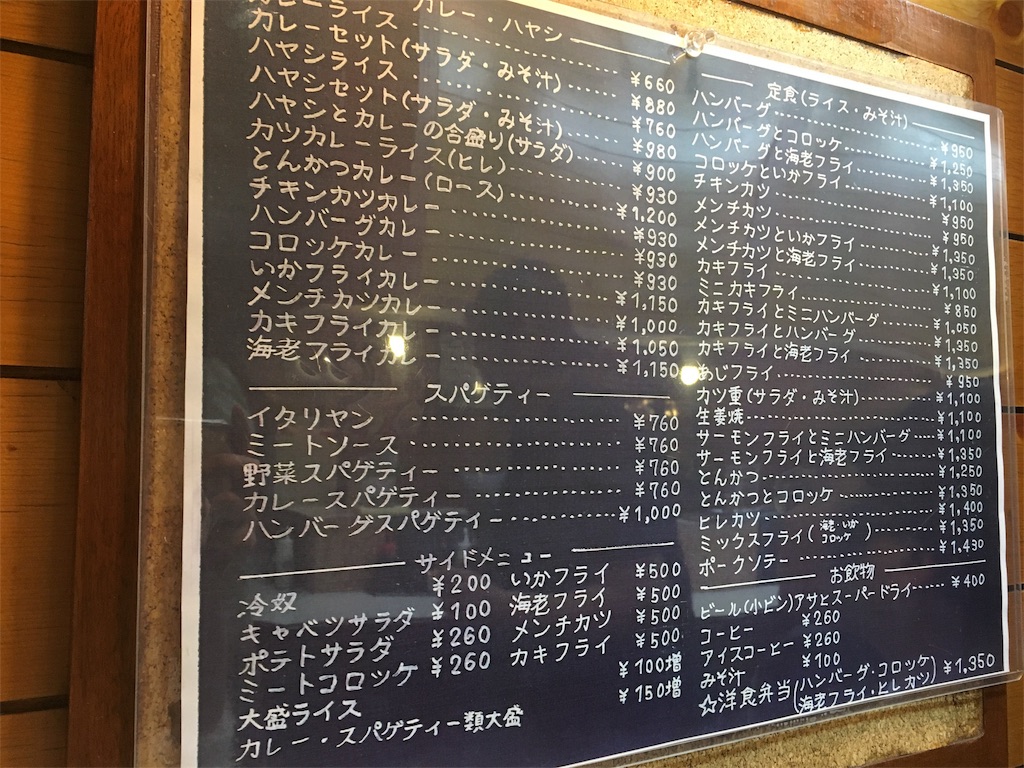 カレー・ハヤシ
ーライス ¥660
カレーセット(サラダ・みそ汁) ¥880
ハヤシライス ¥760
ハヤシセット(サラダ・みそ汁) ¥980
ハヤシとカレーの合盛り(サラダ) ¥900
カツカレーライス(ヒレ) ¥930
とんかつカレー(ロース) ¥1,200
チキンカツカレー ¥930
ハンバーグカレー ¥930
コロッケカレー ¥930
いかフライカレー ¥1,150
メンチカツカレー ¥1,000
カキフライカレー ¥1,050
海老フライカレー ¥1,150
スパゲティー
イタリヤン ¥760
ミートソース ¥760
野菜スパゲティー ¥760
カレースパゲティー ¥760
ハンバーグスパゲティー ¥1,000
サイドメニュー
冷奴 ¥200 いかフライ ¥500
キャベツサラダ ¥100 海老フライ ¥500
ポテトサラダ ¥260 メンチカツ ¥500
ミートコロッケ ¥260 カキフライ ¥500
大盛ライス ¥100増
カレー・スパゲティー類大盛 ¥150増
定食(ライス・みそ汁)
ハンバーグ ¥950
ハンバーグとコロッケ ¥1,250
ハンバーグと海老フライ ¥1,350
コロッケといかフライ ¥1,100
チキンカツ ¥950
メンチカツ ¥950
メンチカツといかフライ ¥1,350
メンチカツと海老フライ ¥1,350
カキフライ ¥1,100
ミニカキフライ ¥850
カキフライとミニハンバーグ ¥1,050
カキフライとハンバーグ ¥1,350
カキフライと海老フライ ¥1,350
あじフライ ¥950
カツ重(サラダ・みそ汁) ¥1,100
生姜焼 ¥1,100
サーモンフライとミニハンバーグ ¥1,100
サーモンフライと海老フライ ¥1,350
とんかつ ¥1,250
とんかつとコロッケ ¥1,350
ヒレカツ ¥1,400
ミックスフライ(海老・いか コロッケ) ¥1,350
ポークソテー ¥1,430
お飲物
ビール(小ビン)アサヒスーパードライ ¥400
コーヒー ¥260
アイスコーヒー ¥260
みそ汁 ¥100
☆洋食弁当(ハンバーグ・コロッケ 海老フライ・ヒレカツ) ¥1,350